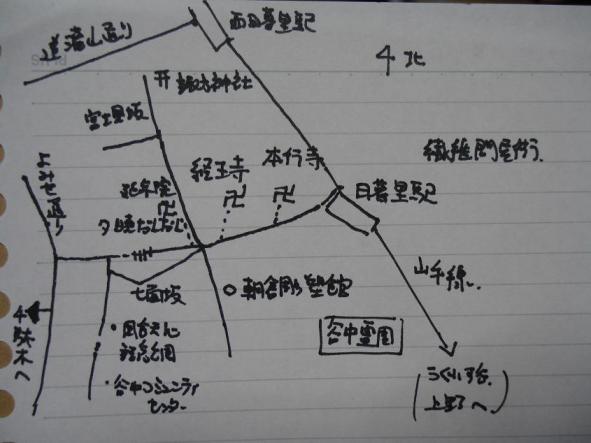 西日暮里駅
道灌山通り
4 北
开 諏方神社
富士見坂
繊維問屋街
よみせ通り
経王寺
本行寺
卍
卍
日暮里駅
延命院
卍
夕焼だんだん
山手線
七面坂
朝倉彫塑館
千駄木へ
岡倉天心
記念公園
谷中霊園
谷中コミュニティ
センター
うぐいす谷
上野へ